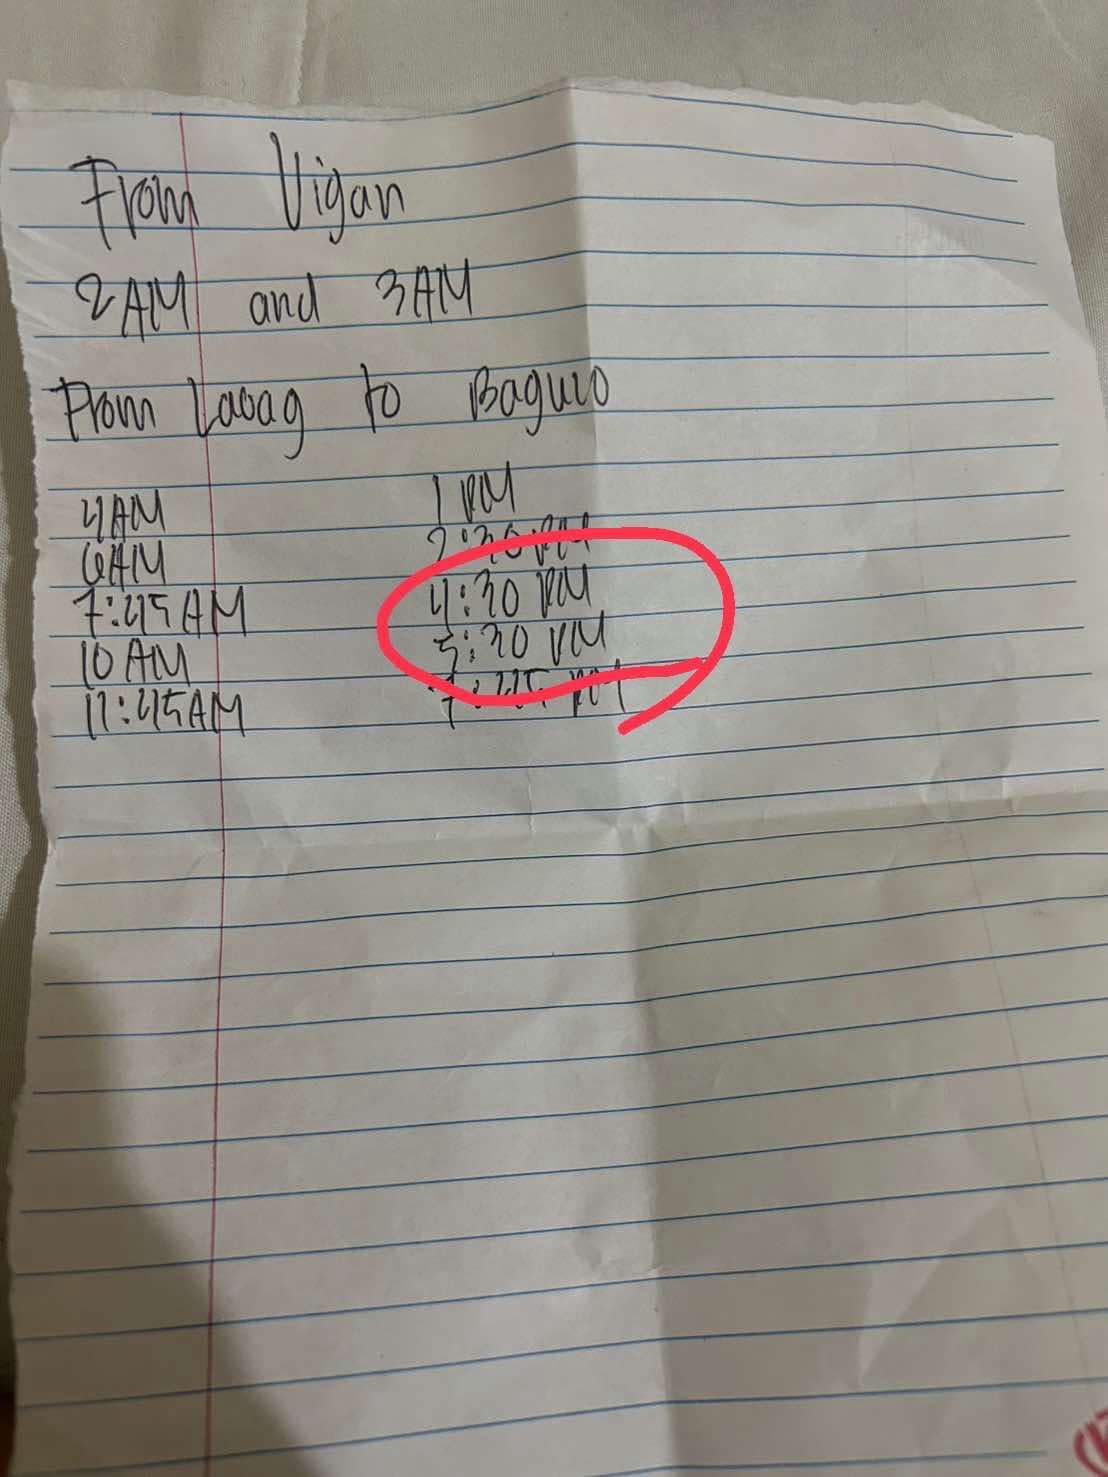 From Vigan
2AM and 3AM
From Laoag to Baguio
4AM 1 PM
6AM 2:30 PM
7:45 AM 4:30 PM
10 AM 5:30 PM
11:45AM 7:45 PM